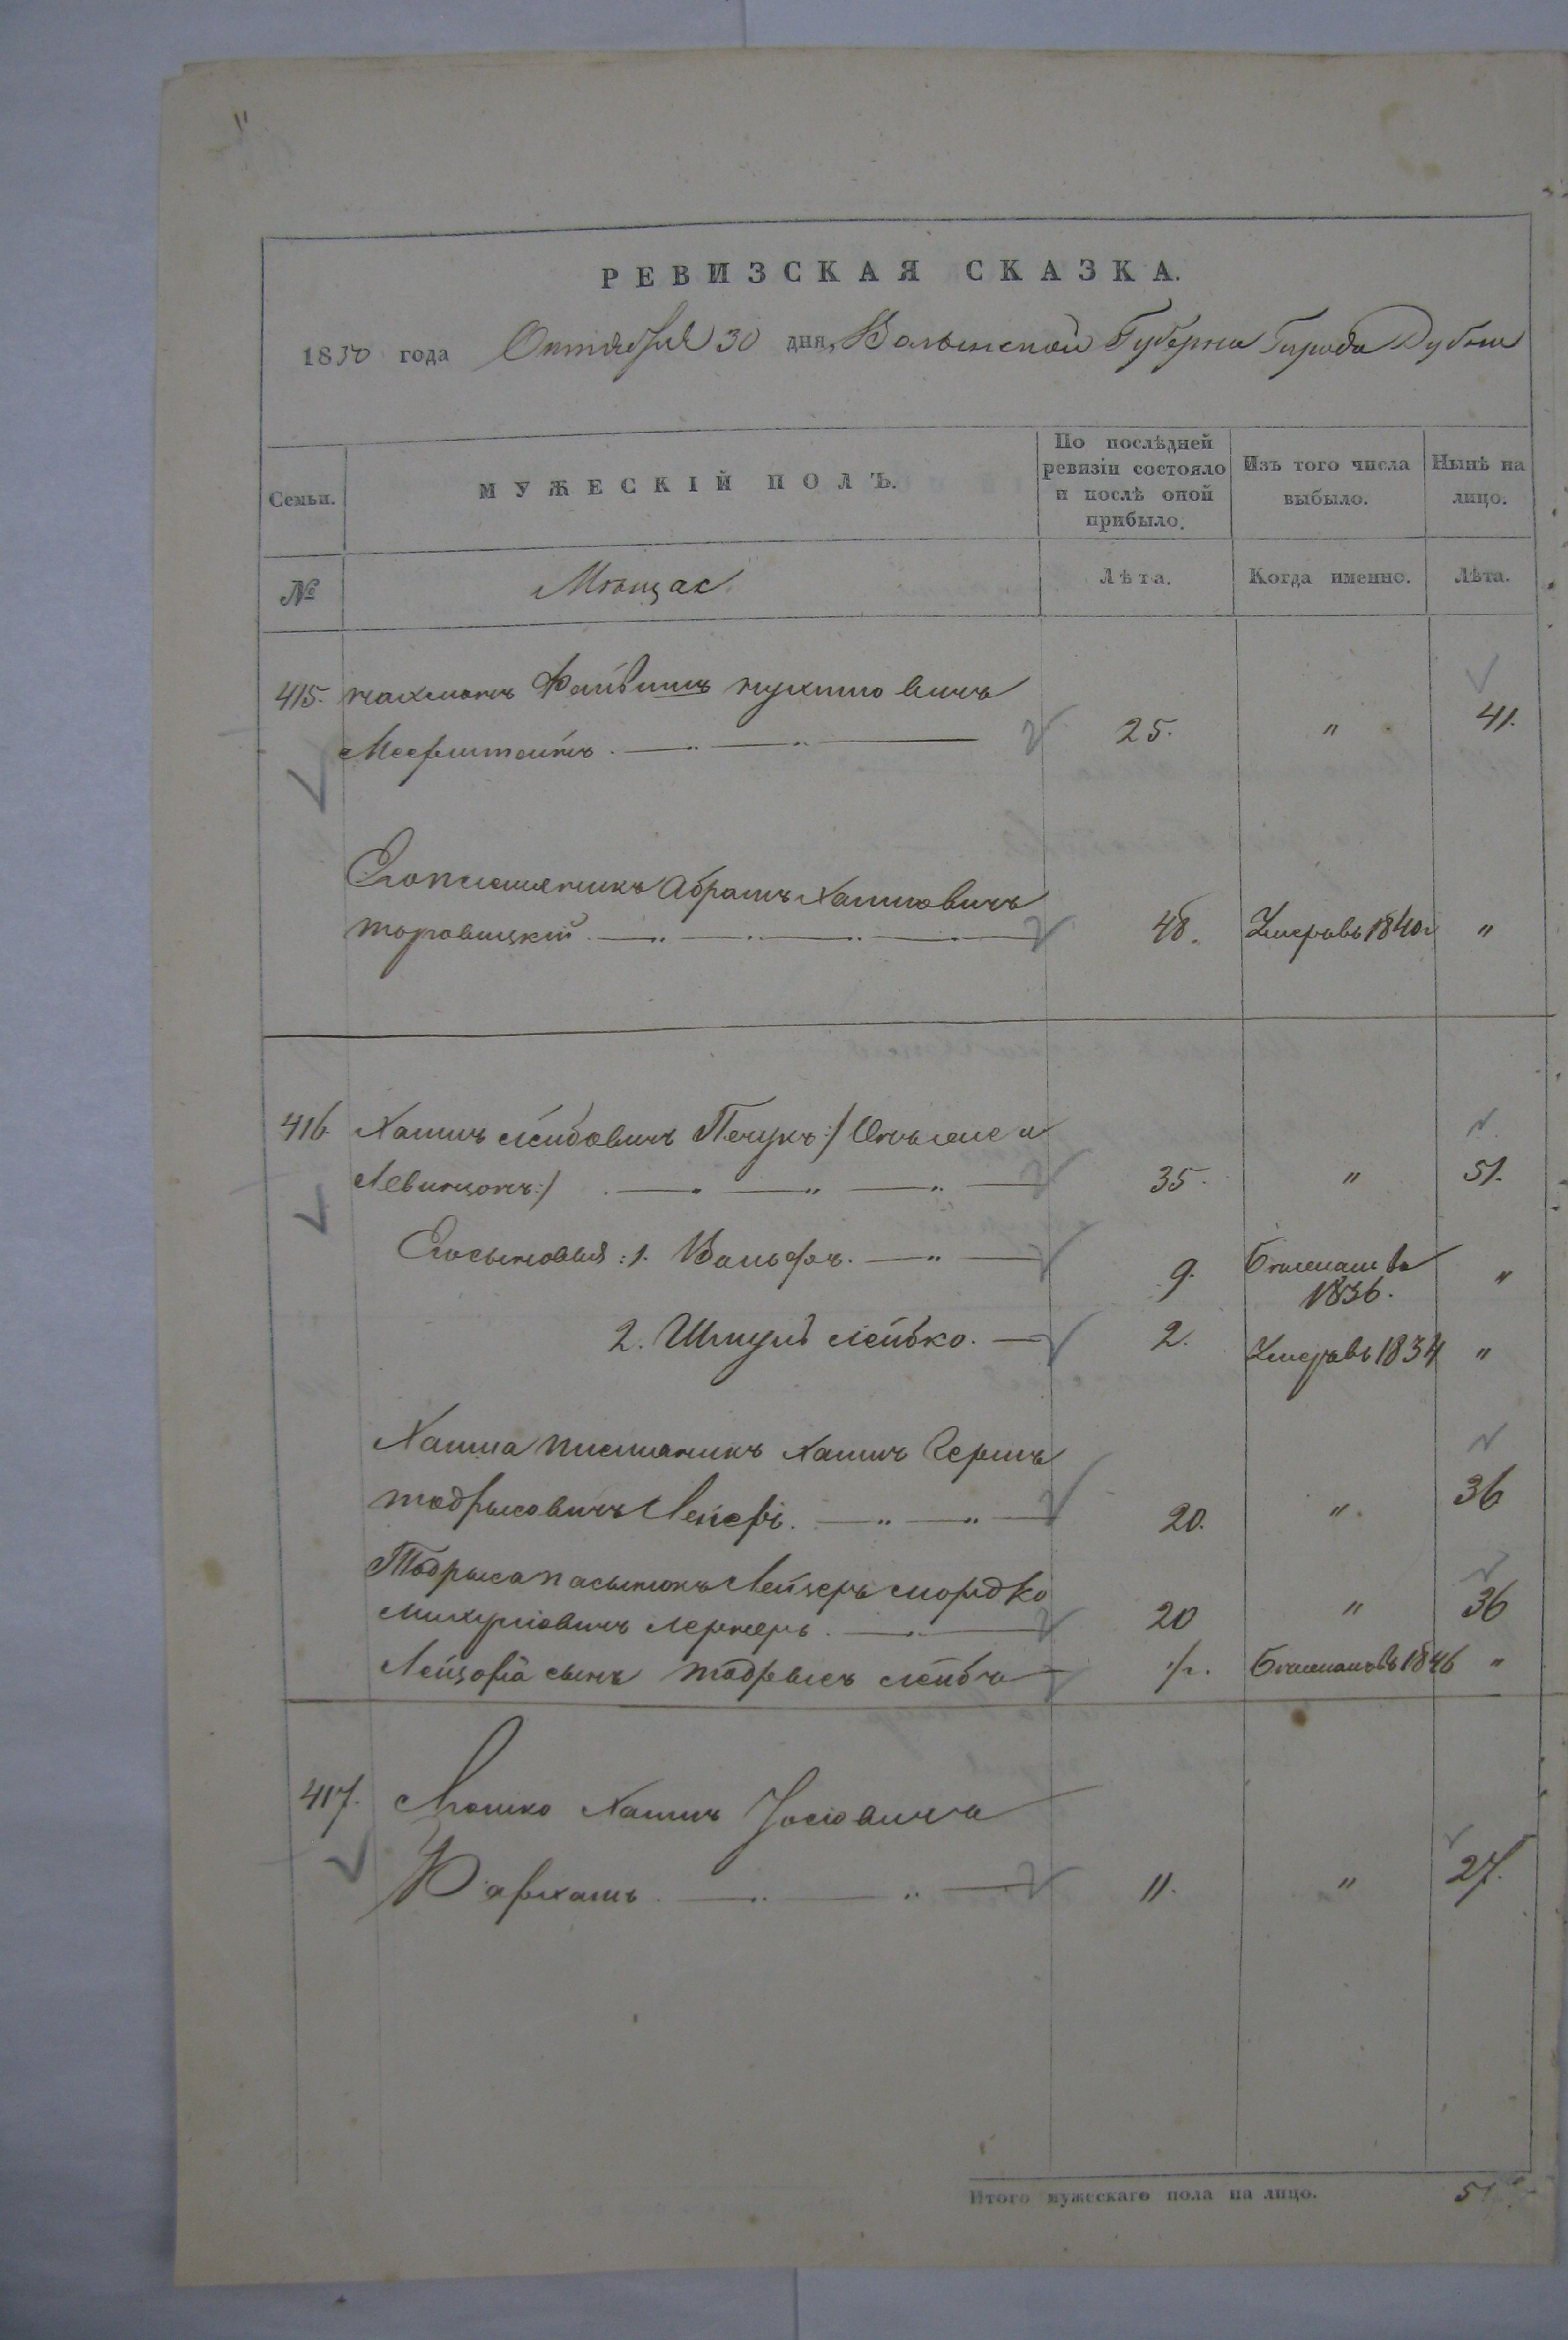 РЕВИЗСКАЯ СКАЗКА.
1850 года Октября 30 дня, Волынской Губернии Города Дубна
Семьи.
МУЖЕСКІЙ ПОЛЪ.
По послѣдней ревизіи состояло и послѣ оной прибыло.
Изъ того числа выбыло.
Нынѣ на лицо.
№
Мѣщан
Лѣта.
Когда именно.
Лѣта.
415. Нахманъ Файвишъ
25. " 41.
Его племянникъ Абрамъ Хаимовичъ
48. Умеръ въ 1840 г "
416 Хаимъ Лейбовичъ
Левинзонъ:/ 35. " 51.
Его сыновья: 1. Вольфъ. 9. въ 1836. "
2. Шмуль Лейбко. 2. Умеръ въ 1834 "
Хаима племяникъ Хаимъ Гершъ
Тодрысовичъ 20. " 36
Тодрыса пасынокъ Лейзеръ Мордко
Лернеръ. 20 " 36
Лейзора сынъ Тодрысъ Лейба въ 1846 "
417. Мошко Хаимъ Іосіовича
11. " 27.
Итого мужескаго пола на лицо. 5